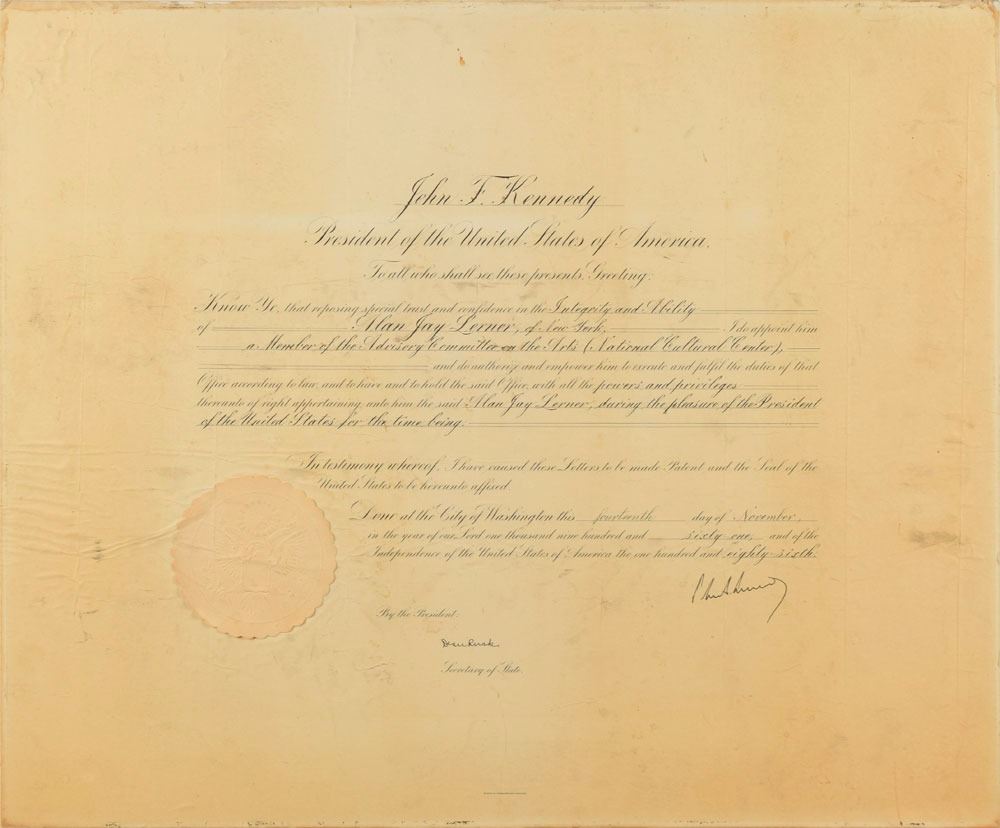 John F. Kennedy
President of the United States of America.
To all who shall see these presents, Greeting:
Know Ye, that reposing special trust and confidence in the Integrity and Ability
of Alan Jay Lerner, of New York, I do appoint him
a Member of the Advisory Committee on the Arts (National Cultural Center),
and do authorize and empower him to execute and fulfil the duties of that
Office according to law, and to have and to hold the said Office, with all the powers and privileges
thereunto of right appertaining, unto him the said Alan Jay Lerner, during the pleasure of the President
of the United States for the time being.
In testimony whereof, I have caused these Letters to be made Patent and the Seal of the
United States to be hereunto affixed.
Done at the City of Washington this fourteenth day of November,
in the year of our Lord one thousand nine hundred and sixty-one, and of the
Independence of the United States of America the one hundred and eighty-sixth.
By the President:
Dean Rusk
Secretary of State.